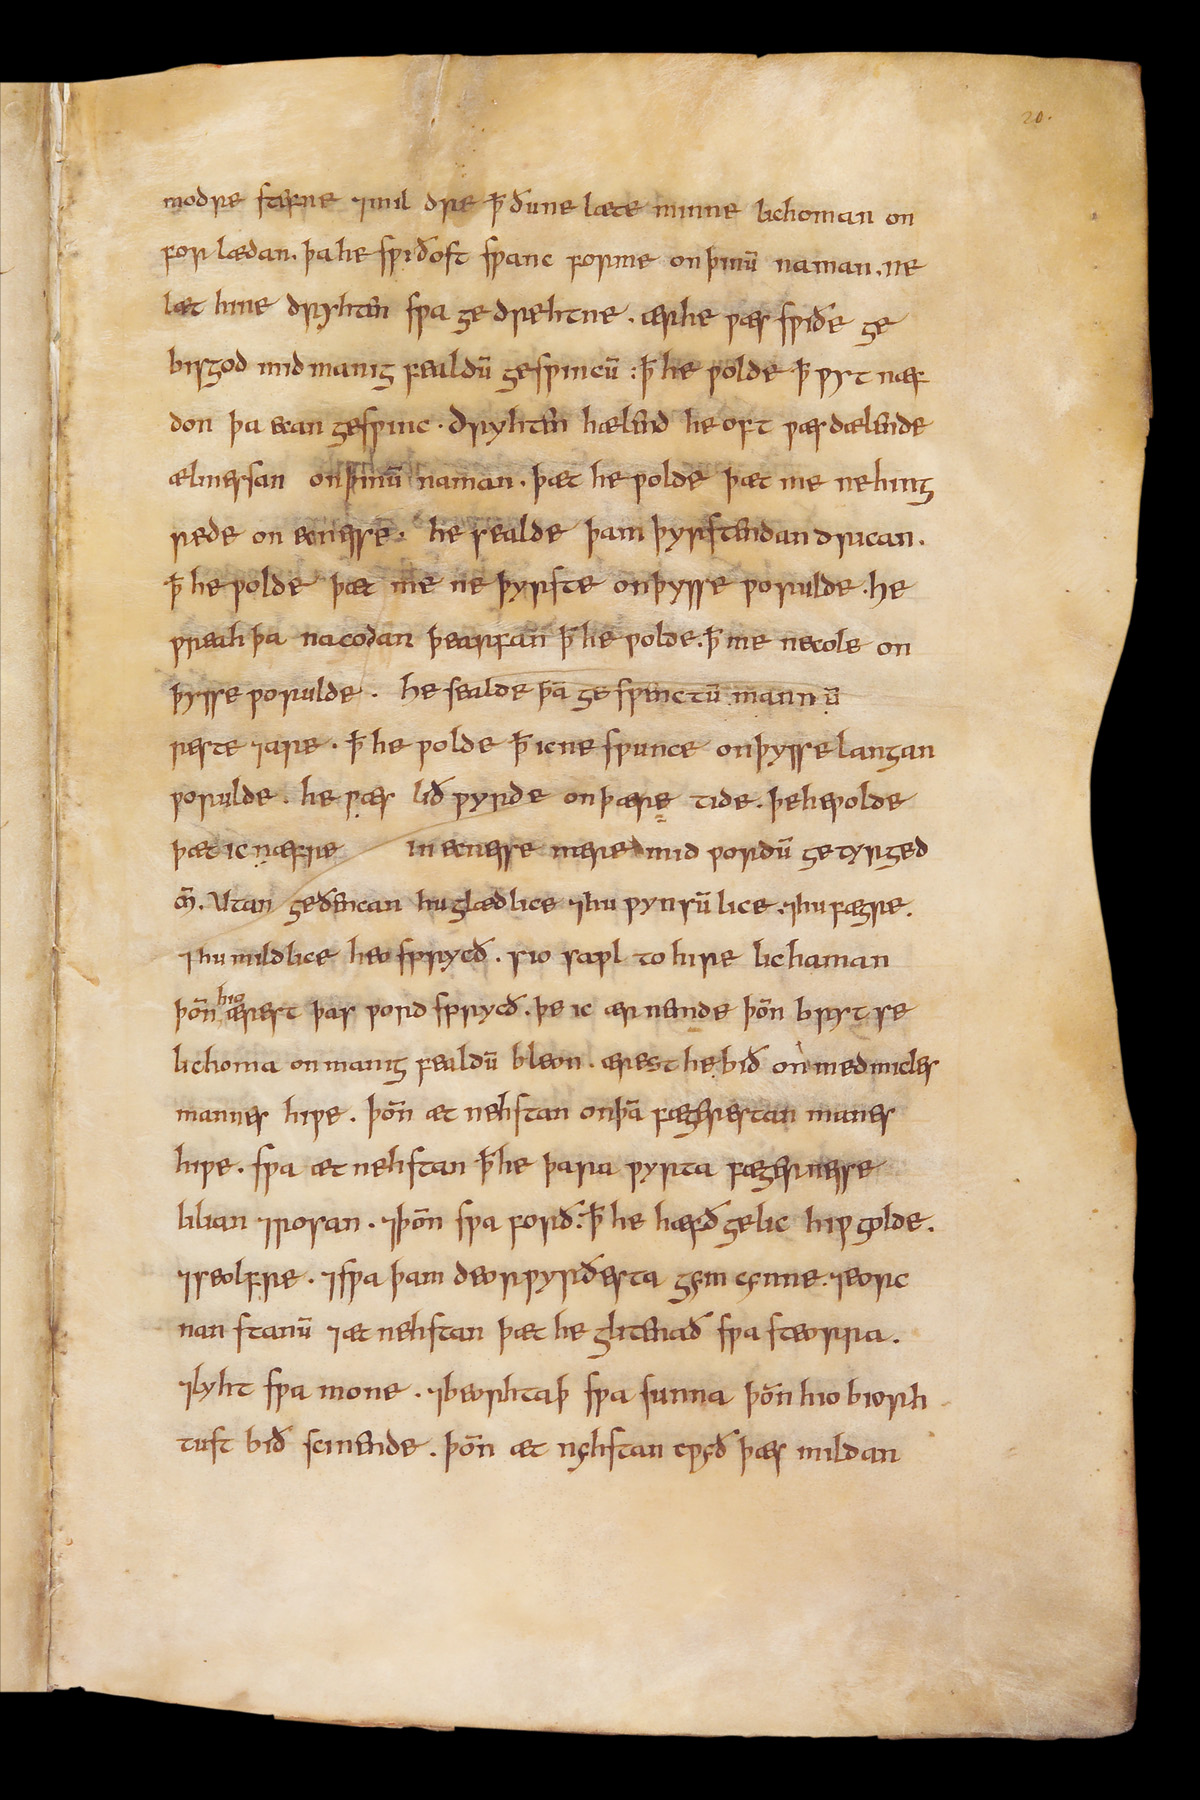 20.
modre stæfne ⁊ mil dre ꝥ ðu ne læte minne lichoman on
for lædan. þa he swið oft swanc for me on þinū naman. ne
læt hine dryhten swa ge drehtne. ær he wæs swiðe ge
bisgod mid manig fealdū geswincū: ꝥ he wolde ꝥ wyt næf
don þa ecan geswinc. Dryhten hælend he oft wæs dælende
ælmessan on þinū naman. þæt he wolde þæt me ne hing
rede on ecnesse. he sealde þam þyrstendan drican.
ꝥ he wolde þæt me ne þyrste on þysse worulde. he
wreah þa nacodan þearfan ꝥ he wolde. ꝥ me ne cole on
þysse worulde. he sealde þā ge swenctū mannū
reste ⁊ are. ꝥ he wolde ꝥ ic ne swunce on þysse langan
worulde. he wæs lið wyrde on þære tide. þe he wolde
þæt ic næfre in ecnesse nære mid wordū ge tyrged
m̄. Utan geðencan hu glædlice ⁊ hu wynsūlice: ⁊ hu fægre.
⁊ hu mildlice heo sprycð. sio sawl to hire lichaman
þōn hio ærest þas word sprycð. þe ic ær nemde þōn bryt se
lichoma on manig fealdū bleon. ærest he bið on medmicles
mannes hiwe. þōn æt nehstan on þā fægerestan manes
hiwe. swa æt nehstan ꝥ he þara wyrta fægernesse
lilian ⁊ rosan. ⁊ þōn swa forð: ꝥ he hæfð gelic hiw golde.
⁊ seolfre. ⁊ swa þam deorwyrðesta gęm cęnne: ⁊ eorc
nan stanū ⁊ æt nehstan þæt he glitenað swa steorra.
⁊ lyht swa mone. ⁊ beorhtaþ swa sunna þōn hio biorh
tust bið scinende. þōn æt nęhstan cwęð þæs mildan